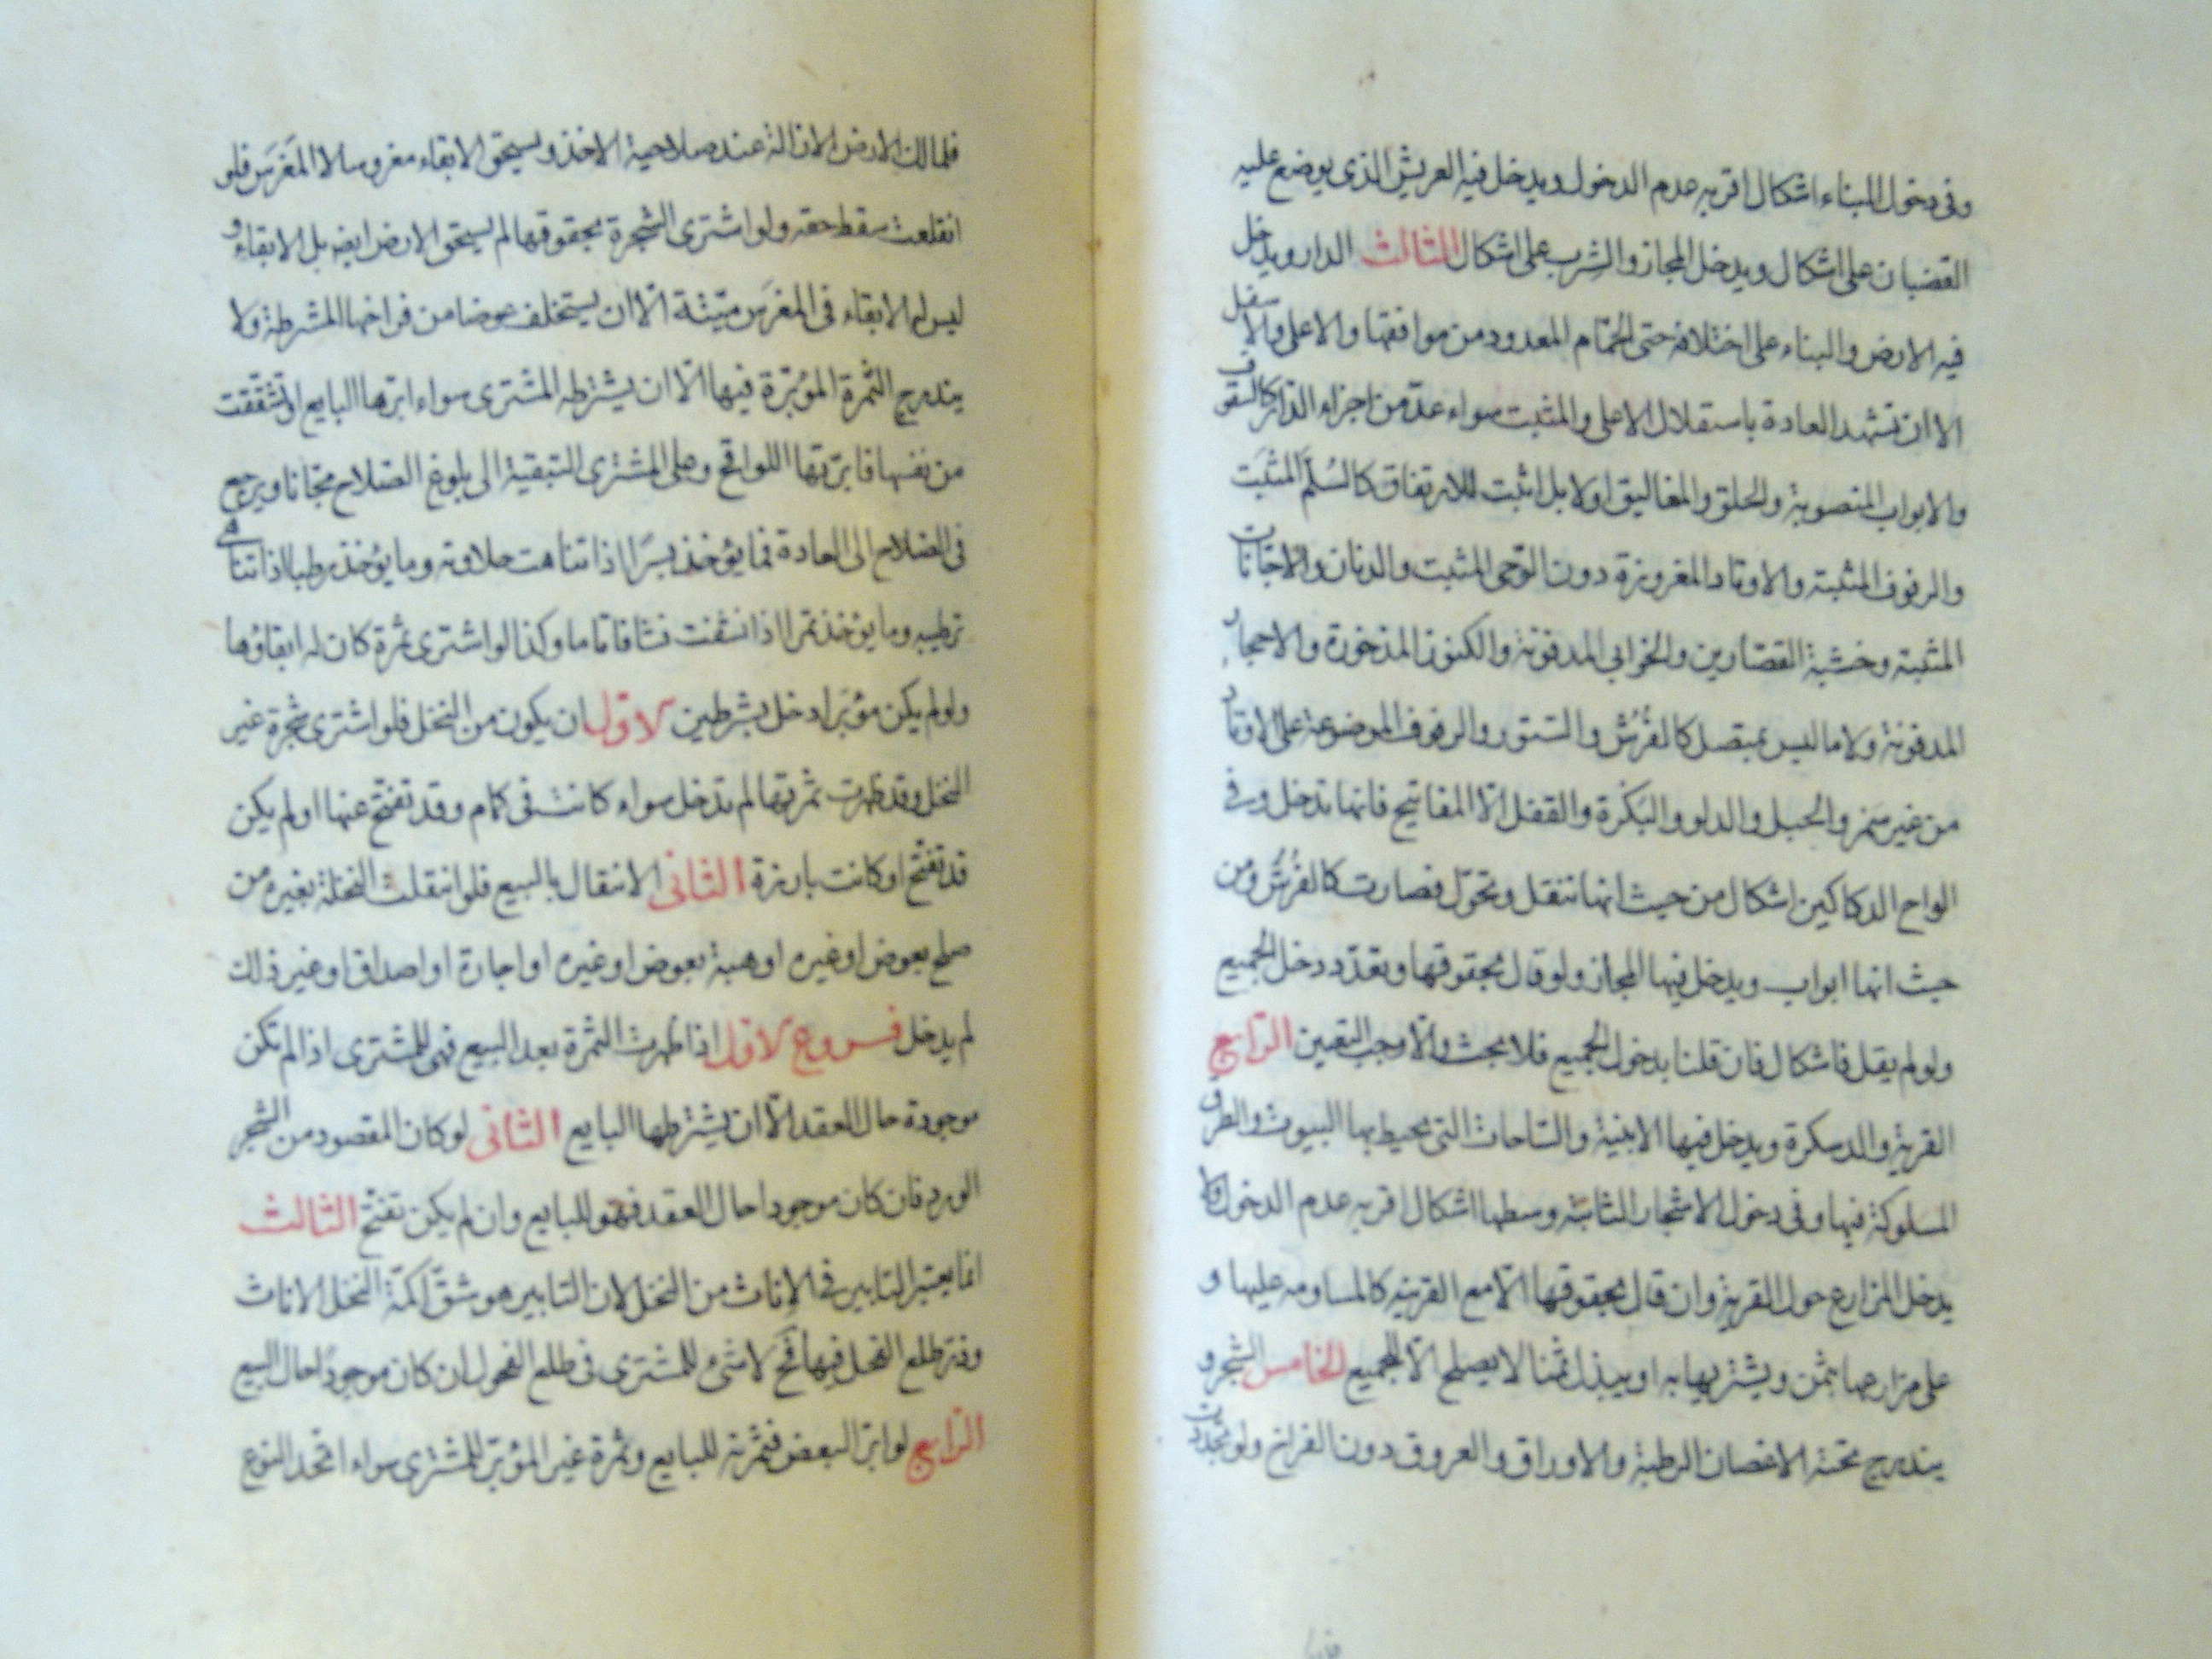 وفي دخول البناء اشكال اقربه عدم الدخول ويدخل فيه العريش الذي يوضع عليه
القضبان على اشكال ويدخل المجاز والشرب على اشكال الثالث الدار ويدخل
فيه الارض والبناء على اختلافه حتى الحمّام المعدود من موافقها والاعلى والاسفل
الا ان تشهد العادة باستقلال الاعلى والمثبت سواء عدّ من اجزاء الدار كالسقوف
والابواب المنصوبة والحلق والمغاليق اولا بل اثبت للارتفاق كالسُلّم المثبَت
والرفوف المثبتة والاوتاد المغروزة دون الرّحى المثبت والدنان والاجّانات
المثبتة وخشبة القصّارين والخوابي المدفونة والكنوز المذخورة والاحجار
المدفونة ولا ما ليس بمتصل كالفُرُش والستور والرفوف الموضوعة على الاوتاد
من غير سَمْر والحبل والدلو والبَكْرة والقفل الّا المفاتيح فانها تدخل وفي
الواح الدكاكين اشكال من حيث انها تنقل وتحوّل فصارت كالفُرُش ومن
حيث انها ابواب ويدخل فيها المجاز ولو قال بحقوقها وتعدّد دخل الجميع
ولو لم يقل فاشكال فان قلنا بدخول الجميع فلا بحث والّا وجب التعيين الرّابع
القرية والدسكرة ويدخل فيها الابنية والسّاحات التي يحيط بها البيوت والطرق
المسلوكة فيها وفي دخول الاشجار النابتة وسطها اشكال اقربه عدم الدخول ولا
يدخل المزارع حول القرية وان قال بحقوقها الّا مع القرينة كالمساومة عليها و
على مزارعها بثمن ويشتريها به او يبذل ثمنا لا يصلح الّا للجميع الخامس الشجر و
يندرج تحته الاغصان الرطبة والاوراق والعروق دون الفراخ ولو تجدّدت
فلمالك الارض الازالة عند صلاحية الاخذ ويستحق الابقاء مغروسا لا المَغرَس فلو
انقلعت سقط حقه ولو اشترى الشجرة بحقوقها لم يستحق الارض ايضا بل الابقاء و
ليس له الابقاء في المغرَس ميّتة الّا ان يستخلف عوضا من فراخها المشرطة ولا
يندرج الثمرة المؤبّرة فيها الّا ان يشترطه المشتري سواء ابّرها البايع او تشقّقت
من نفسها فابّرتها اللواقح وعلى المشتري التبقية الى بلوغ الصّلاح مجّانا ويرجع
في الصّلاح الى العادة فما يؤخذ بسرًا اذا تناهت حلاوته وما يؤخذ رطبا اذا تناهى
ترطيبه وما يؤخذ تمرا اذا نشفت نشافا تاما وكذا لو اشترى ثمرة كان له ابقاؤها
ولو لم يكن مؤبَرا دخل بشرطين الاوّل ان يكون من النخل فلو اشترى شجرة غير
النخل وقد ظهرت ثمرتها لم تدخل سواء كانت في كمام وقد تفتّح عنها او لم يكن
قد تفتّح او كانت بارزة الثاني الانتقال بالبيع فلو انتقلت النخلة بغيره من
صلح بعوض او غيره او هبة بعوض او غيره او اجارة او اصداق او غير ذلك
لم يدخل فروع الاوّل اذا ظهرت الثمرة بعد البيع فهي للمشتري اذا لم تكن
موجودة حال العقد الّا ان يشترطها البايع الثاني لو كان المقصود من الشجر
الورد فان كان موجودا حال العقد فهو للبايع وان لم يكن تفتّح الثالث
انما يعتبر التابير في الاِناث من النخل لان التابير هو شقّ اكمّة النخل الاناث
وذرّ طلع الفحل فيها فح لا شيء للمشتري في طلع الفحول ان كان موجودًا حال البيع
الرّابع لو ابّر البعض فثمرته للبايع وثمرة غير المؤبّر للمشتري سواء اتحد النوع